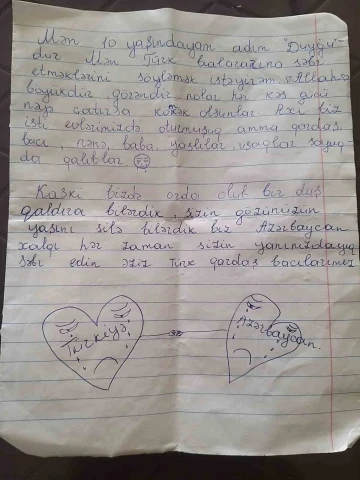 Mən 10 yaşındayam adım "Duyğu"
dur Mən Türk balalarına səbr
etməklərini söyləmək istəyirəm Allah
böyükdür görəndir nolar hər kəs gücü
nəyə çatırsa kömək olsunlar Axı biz
isti evlərimizdə oturmuşuq amma qardaş
bacı, nənə, baba, yaşlılar, uşaqlar soyuq
da qalıblar
Kaşki bizdə orda olub bir daş
qaldıra bilərdik, sizin gözünüzün
yaşını silə bilərdik biz Azərbaycan
xalqı hər zaman sizin yanınızdayıq
səbr edin əziz Türk qardaş bacılarımız
Türkiyə
Azərbaycan.